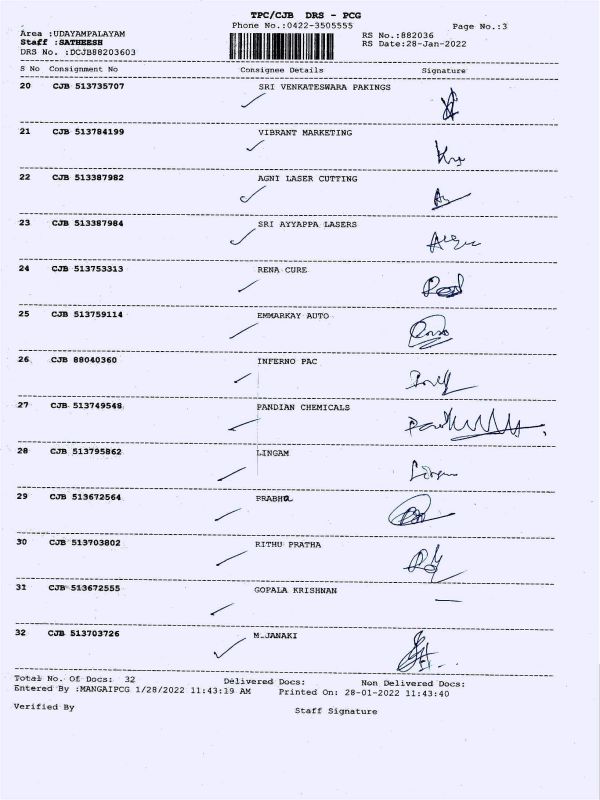 TPC/CJB DRS - PCG
Phone No.:0422-3505555 Page No.:3
Area :UDAYAMPALAYAM RS No.:882036
Staff :SATHEESH RS Date:28-Jan-2022
DRS No. :DCJB88203603
S No Consignment No Consignee Details Signature
20 CJB 513735707 SRI VENKATESWARA PAKINGS
21 CJB 513784199 VIBRANT MARKETING
22 CJB 513387982 AGNI LASER CUTTING
23 CJB 513387984 SRI AYYAPPA LASERS
24 CJB 513753313 RENA CURE
25 CJB 513759114 EMMARKAY AUTO
26 CJB 88040360 INFERNO PAC
27 CJB 513749548 PANDIAN CHEMICALS
28 CJB 513795862 LINGAM
29 CJB 513672564 PRABHU
30 CJB 513703802 RITHU PRATHA
31 CJB 513672555 GOPALA KRISHNAN
32 CJB 513703726 M.JANAKI
Total No. Of Docs: 32 Delivered Docs: Non Delivered Docs:
Entered By :MANGAIPCG 1/28/2022 11:43:19 AM Printed On: 28-01-2022 11:43:40
Verified By Staff Signature